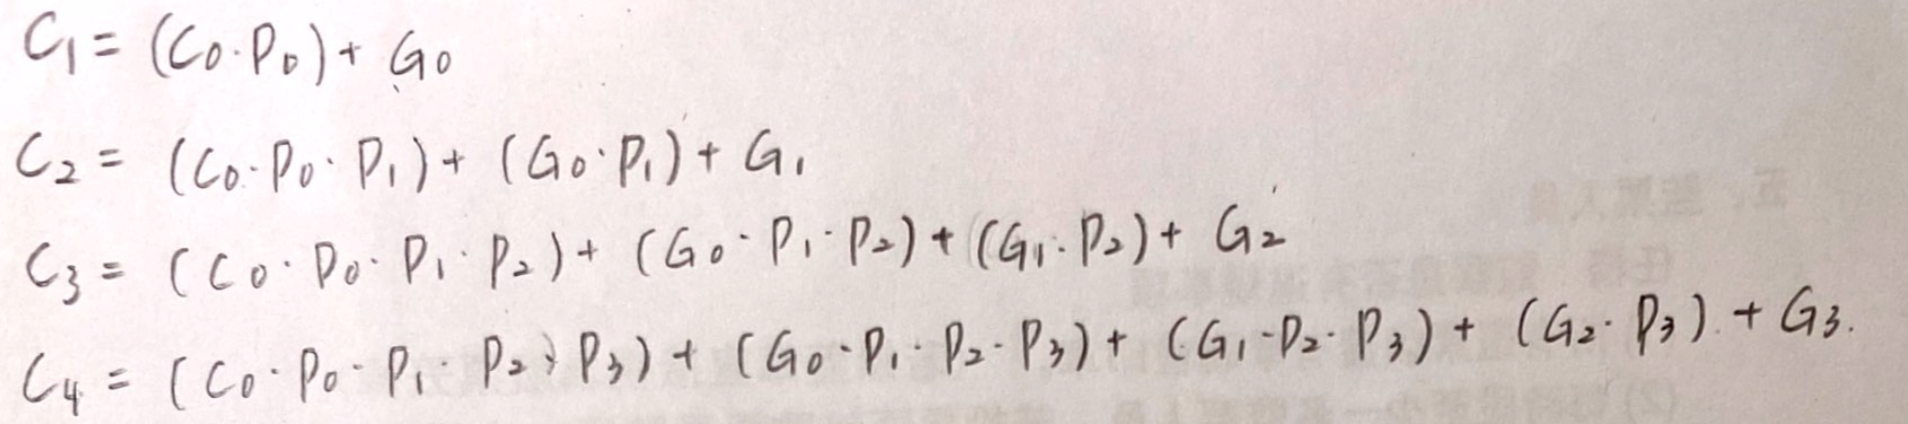 C₁ = (C₀·P₀) + G₀
C₂ = (C₀·P₀·P₁) + (G₀·P₁) + G₁
C₃ = (C₀·P₀·P₁·P₂) + (G₀·P₁·P₂) + (G₁·P₂) + G₂
C₄ = (C₀·P₀·P₁·P₂·P₃) + (G₀·P₁·P₂·P₃) + (G₁·P₂·P₃) + (G₂·P₃) + G₃.